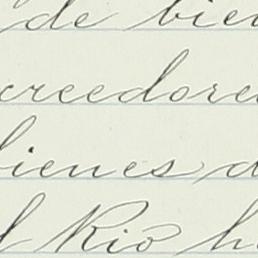 de bien
creedores
bienes d
l Rio h